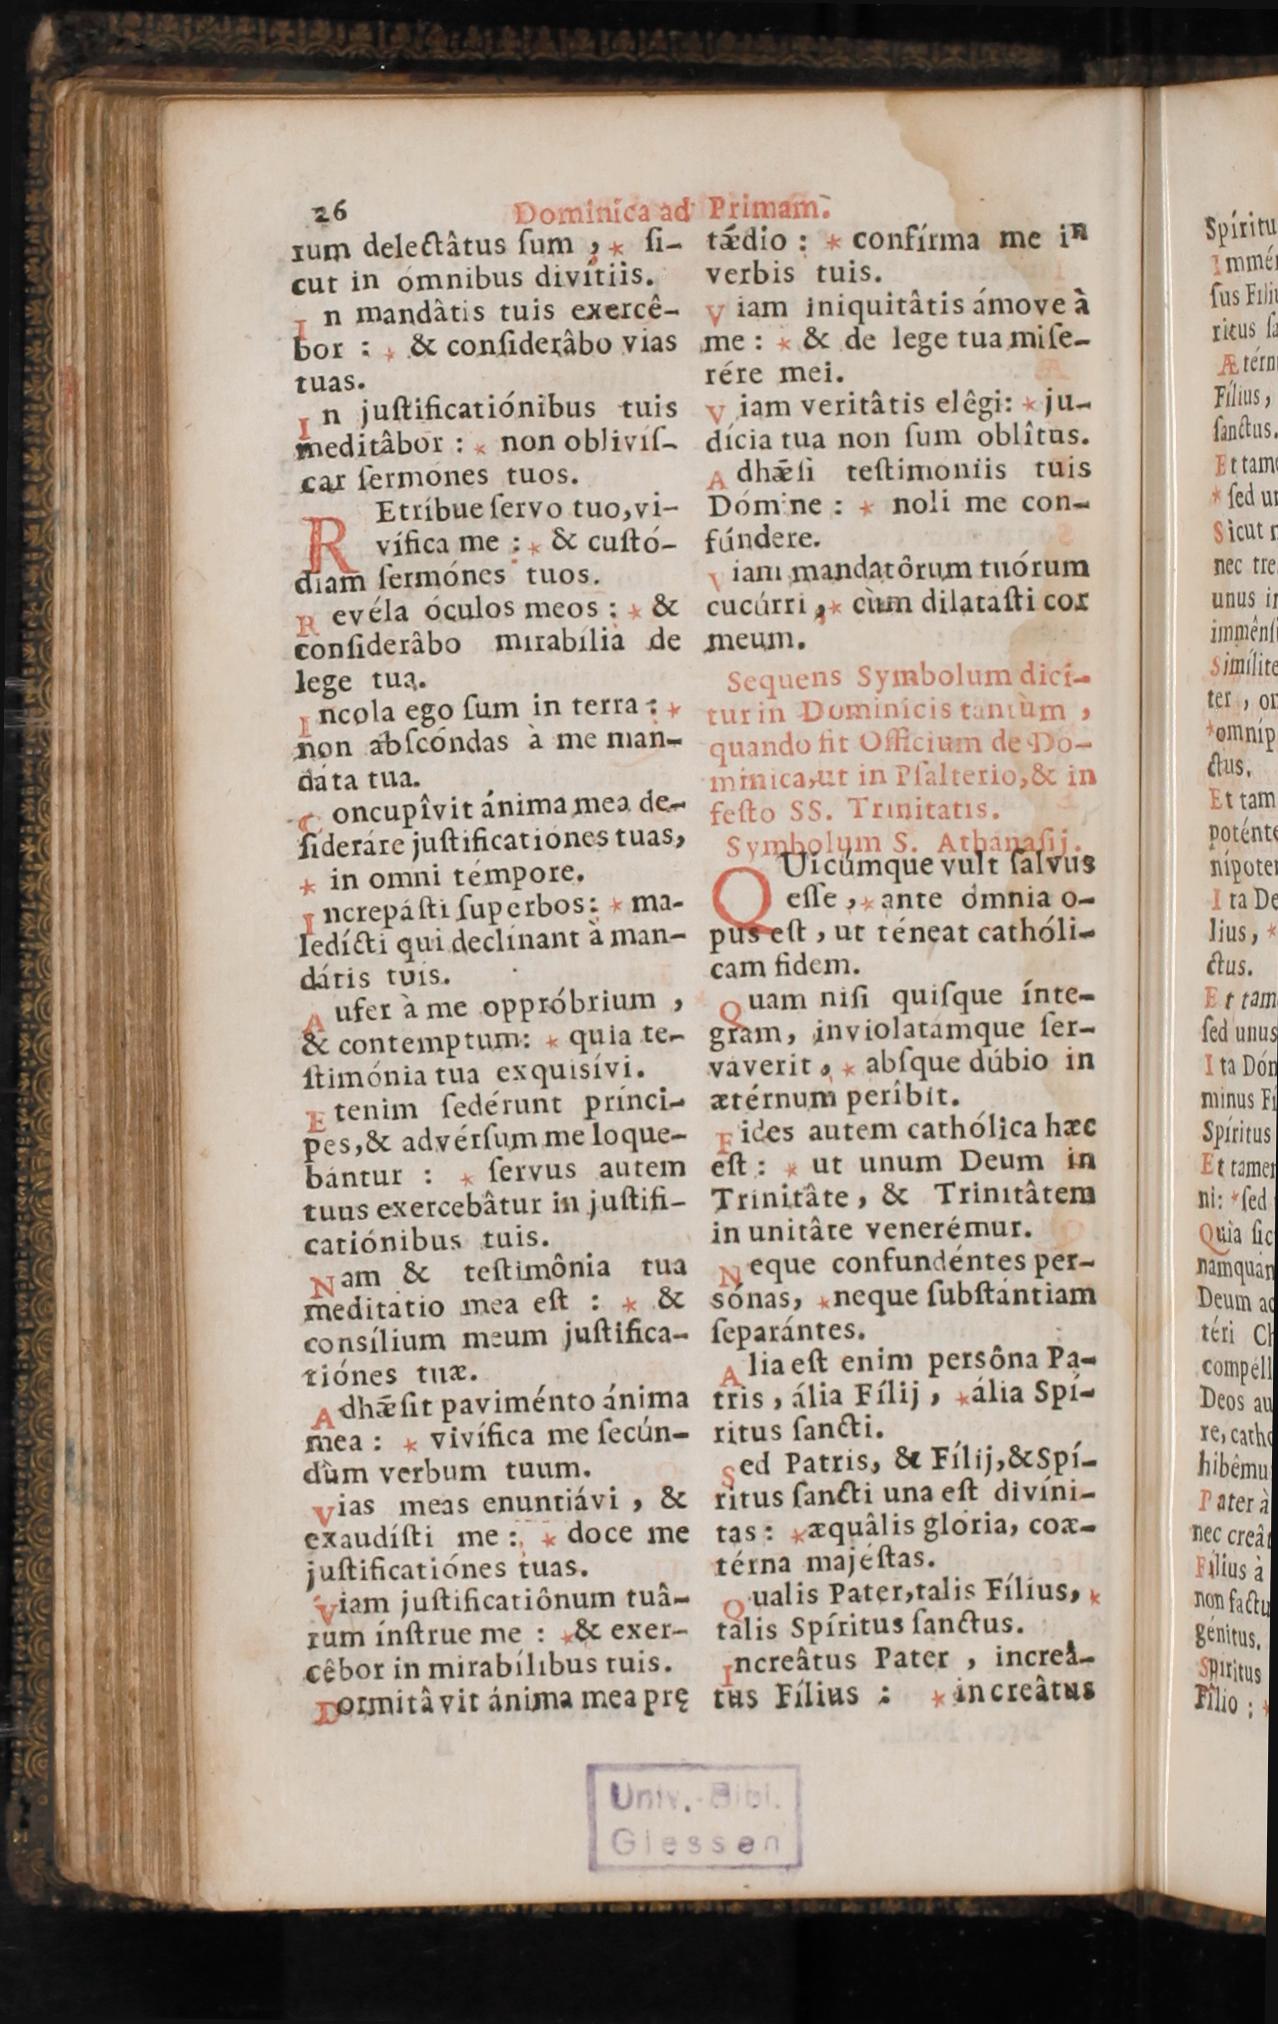 26 Dominica ad Primam.
rum delectâtus ſum , * ſi-
cut in ómnibus divítiis.
In mandâtis tuis exercê-
bor : * & conſiderâbo vias
tuas.
In juſtificatiónibus tuis
meditâbor : * non obliviſ-
car ſermónes tuos.
REtríbue ſervo tuo, vi-
vífica me : * & cuſtó-
diam ſermónes tuos.
Revéla óculos meos : * &
conſiderâbo mirabília de
lege tua.
Incola ego ſum in terra : *
non abſcóndas à me man-
dáta tua.
Concupîvit ánima mea de-
ſideráre juſtificationes tuas,
* in omni témpore.
Increpáſti ſuperbos : * ma-
ledícti qui declínant à man-
dátis tuis.
Aufer à me oppróbrium ,
& contemptum : * quia te-
ſtimónia tua exquisívi.
Etenim ſedérunt prínci-
pes, & advérſum me loque-
bántur : * ſervus autem
tuus exercebâtur in juſtifi-
catiónibus tuis.
Nam & teſtimônia tua
meditátio mea eſt : * &
consílium meum juſtifica-
tiónes tuæ.
Adhǽſit paviménto ánima
mea : * vivífica me ſecún-
dùm verbum tuum.
Vias meas enuntiávi , &
exaudíſti me : * doce me
juſtificatiónes tuas.
Viam juſtificatiônum tuâ-
rum ínſtrue me : * & exer-
cêbor in mirabílibus tuis.
Dormitâvit ánima mea prę
tǽdio : * confírma me in
verbis tuis.
Viam iniquitâtis ámove à
me : * & de lege tua miſe-
rére mei.
Viam veritâtis elêgi : * ju-
dícia tua non ſum oblîtus.
Adhǽſi teſtimoniis tuis
Dómine : * noli me con-
fúndere.
Viam mandatôrum tuórum
cucúrri , * cùm dilataſti cor
meum.
Sequens Symbolum dicí-
tur in Dominicis tantùm ,
quando fit Officium de Do-
minica, ut in Pſalterio, & in
feſto SS. Trinitatis.
Symbolum S. Athanaſij.
QUicúmque vult ſalvus
eſſe , * ante ómnia o-
pus eſt , ut téneat cathóli-
cam fidem.
Quam niſi quiſque ínte-
gram, inviolatámque ſer-
váverit , * abſque dúbio in
ætérnum perîbit.
Fides autem cathólica hæc
eſt : * ut unum Deum in
Trinitâte , & Trinitâtem
in unitâte venerémur.
Neque confundéntes per-
sónas, * neque ſubſtántiam
ſeparántes.
Alia eſt enim persôna Pa-
tris , ália Fílij , * ália Spí-
ritus ſancti.
Sed Patris, & Fílij, & Spí-
ritus ſancti una eſt divíni-
tas : * æquâlis glória, coæ-
térna majéſtas.
Qualis Pater, talis Fílius, *
talis Spíritus ſanctus.
Increâtus Pater , increâ-
tus Fílius : * increâtus
Univ.-Bibl.
Giessen
Spíritu
ſus Fíliu
Ætérn
Fílius ,
ſanctus.
Et tam
* ſed un
Sicut n
nec tre
unus in
immênſ
Simílite
ter , om
* omníp
ctus.
Et tam
poténte
nípoten
Ita De
lius , *
ctus.
Et tam
ſed unus
Ita Dóm
minus Fí
Spíritus
Et tamen
ni : * ſed
Quia ſic
namquam
Deum ac
téri Ch
compéll
Deos au
re, cathó
hibêmu
Pater à
nec creât
Fílius à
non factu
génitus.
Spíritus
Fílio : *